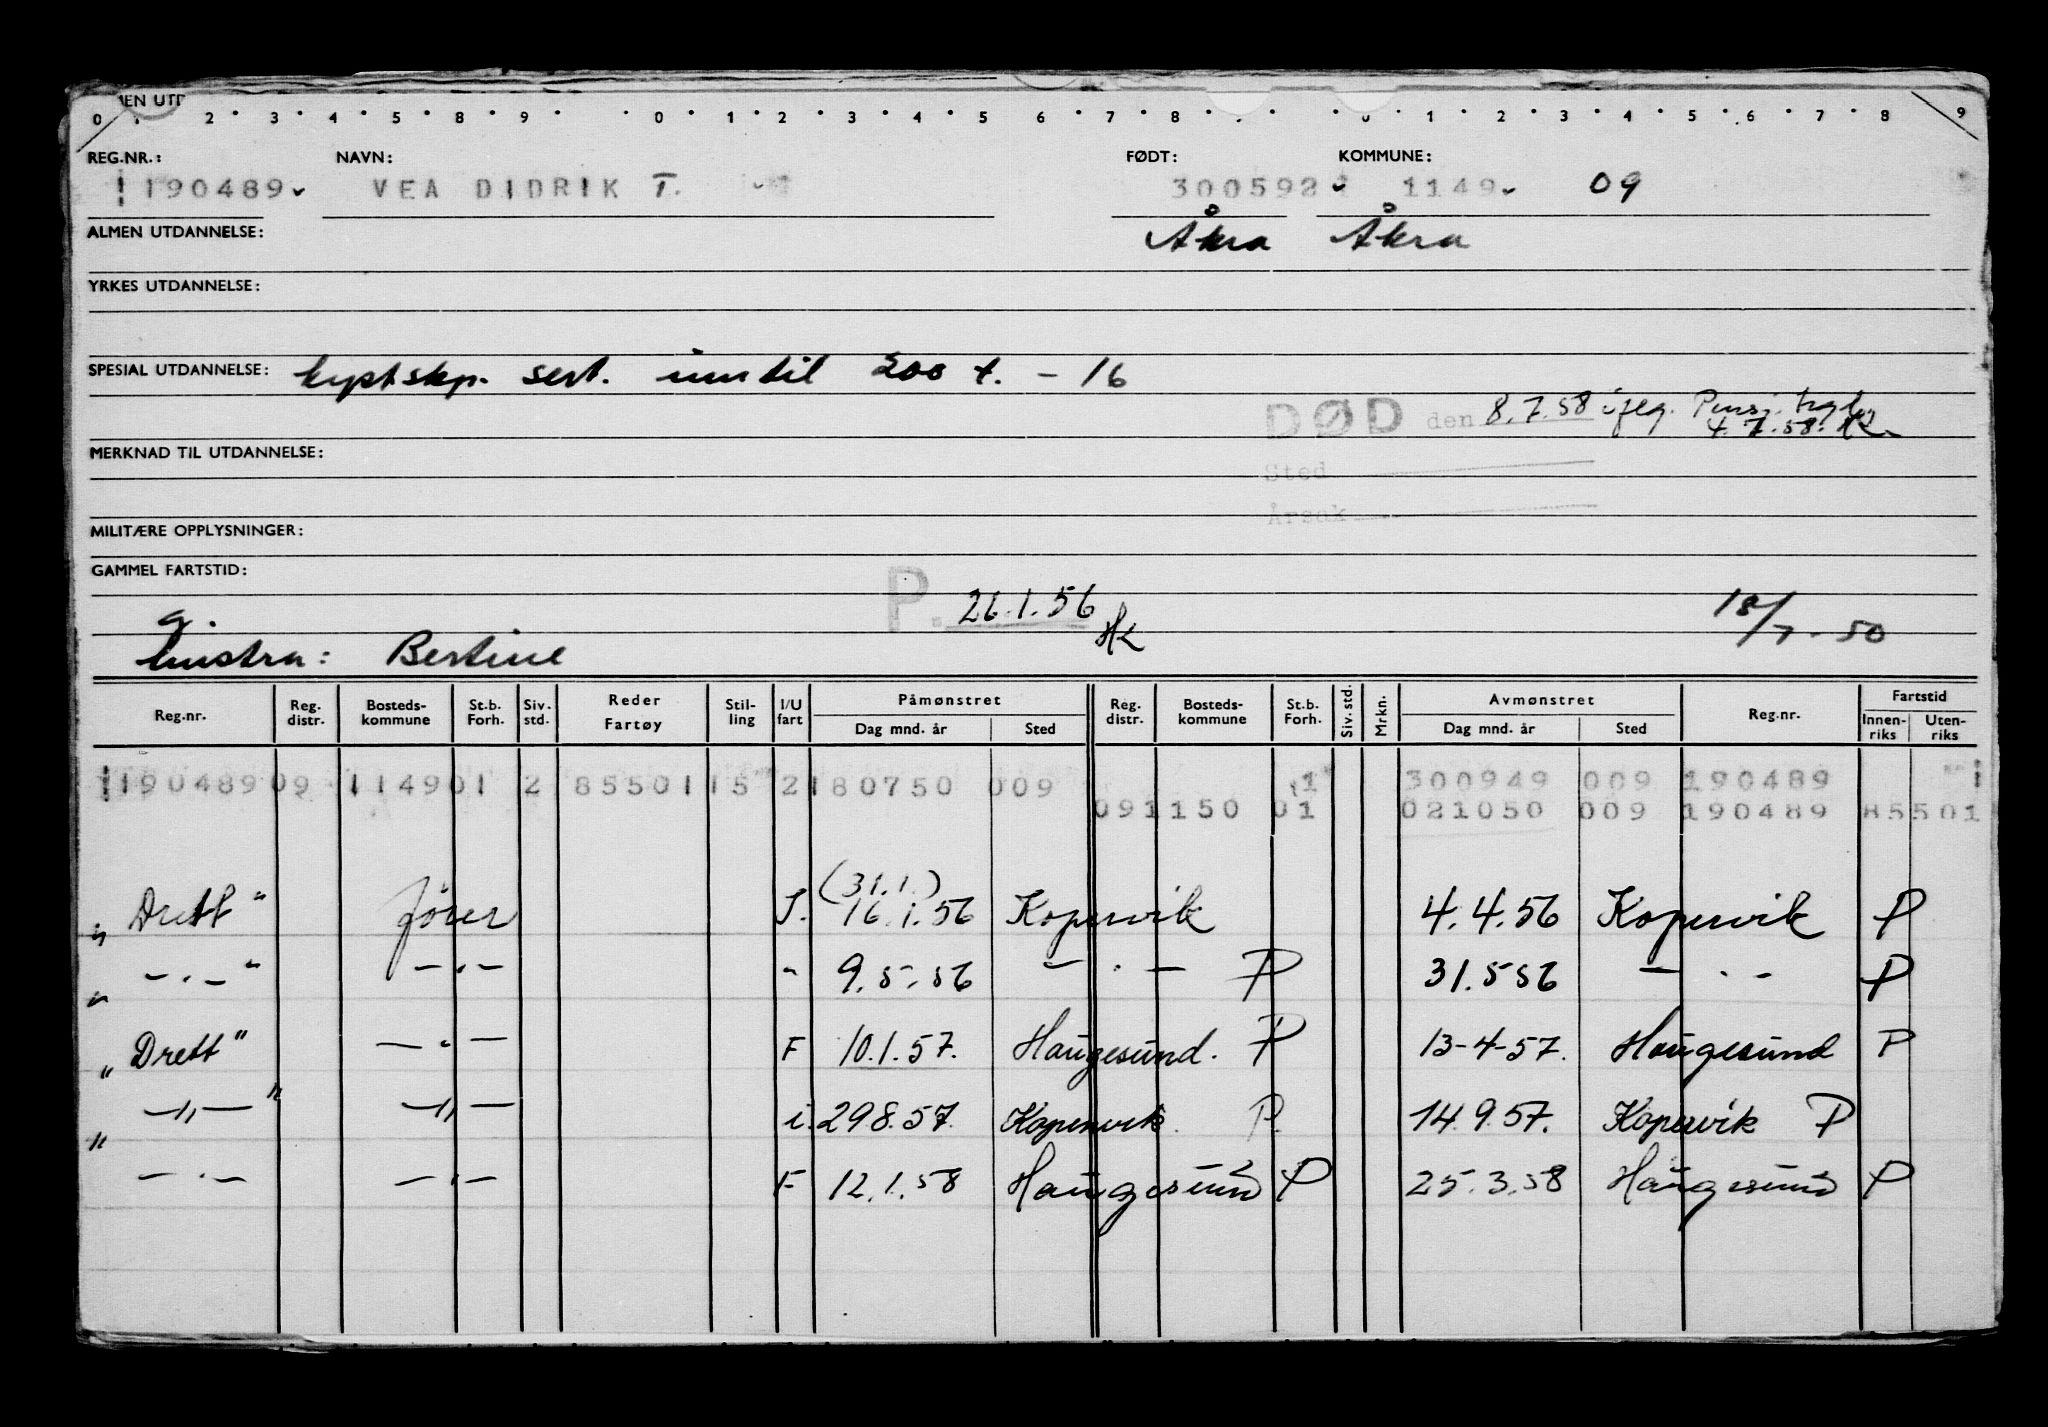 MEN UTD
0 2 3 4 5 8 9 0 1 2 3 4 5 6 7 8 1 2 3 4 5 6 7 8 9
REG.NR.: NAVN: FØDT: KOMMUNE:
190489 VEA DIDRIK T. 300592 1149 09
ALMEN UTDANNELSE: Åkra Åkra
YRKES UTDANNELSE:
SPESIAL UTDANNELSE: kystskp. sert. inntil 200 t. - 16
DØD den 8.7.58 iflg. Pensj. trygd
4.7.58. HK
MERKNAD TIL UTDANNELSE: Sted
MILITÆRE OPPLYSNINGER: Årsak
GAMMEL FARTSTID:
g. P. 26.1.56 HK 18/7-50
hustru: Bertine
Reg.nr. Reg. distr. Bosteds-kommune St.b. Forh. Siv. std. Reder Fartøy Stil-ling I/U fart Påmønstret Dag mnd. år Sted Reg. distr. Bosteds-kommune St.b. Forh. Siv. std. Mrkn. Avmønstret Dag mnd. år Sted Reg.nr. Fartstid Innen-riks Uten-riks
19048909 114901 2 85501 15 2 180750 009 1 300949 009 190489 1
091150 01 021050 009 190489 85501
(31.1.)
„Drett" fører I. 16.1.56 Kopervik 4.4.56 Kopervik P
„ —.—" —.— " 9.5.56 —.— P 31.5 56 —.— P
„Drett" —.— F 10.1.57. Haugesund. P 13-4-57. Haugesund P
„ —"—" —"— i. 29.8.57. Kopervik. P. 14.9.57. Kopervik P
" —.— —.— F 12.1.58 Haugesund P 25.3.58 Haugesund P